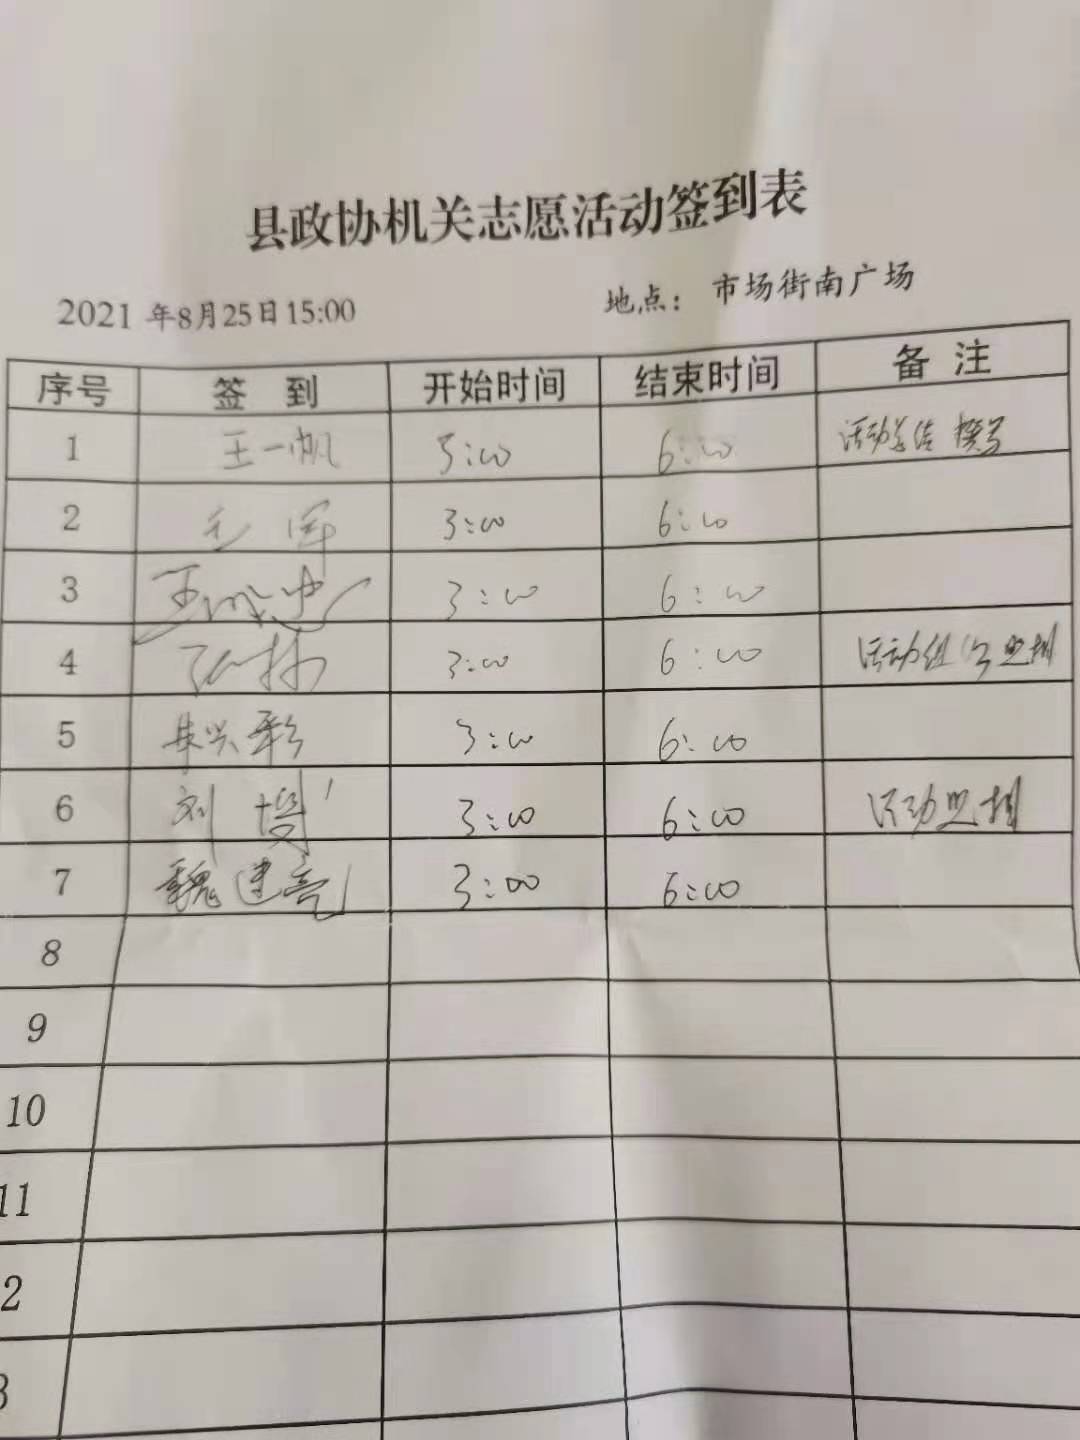 县政协机关志愿活动签到表
2021年8月25日15:00 地点：市场街南广场
序号 签 到 开始时间 结束时间 备 注
1 王一帆 3:00 6:00 活动总结 撰写
2 3:00 6:00
3 3:00 6:00
4 3:00 6:00 活动组
5 朱兴彩 3:00 6:00
6 刘 3:00 6:00 活动照相
7 魏建亮 3:00 6:00
8
9
10
11
2
3